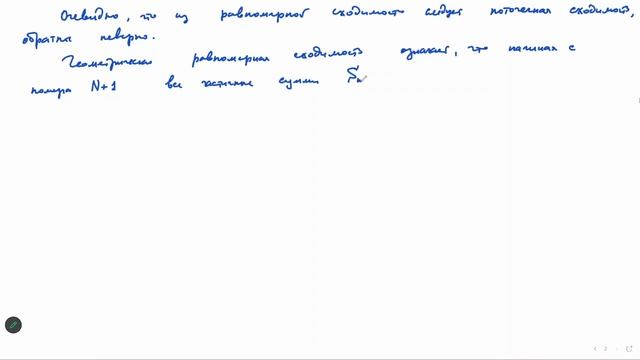 Очевидно, что из равномерной сходимости следует поточечная сходимость,
обратное неверно.
Геометрически равномерная сходимость означает, что начиная с
номера N+1 все частичные суммы Sₙ
2